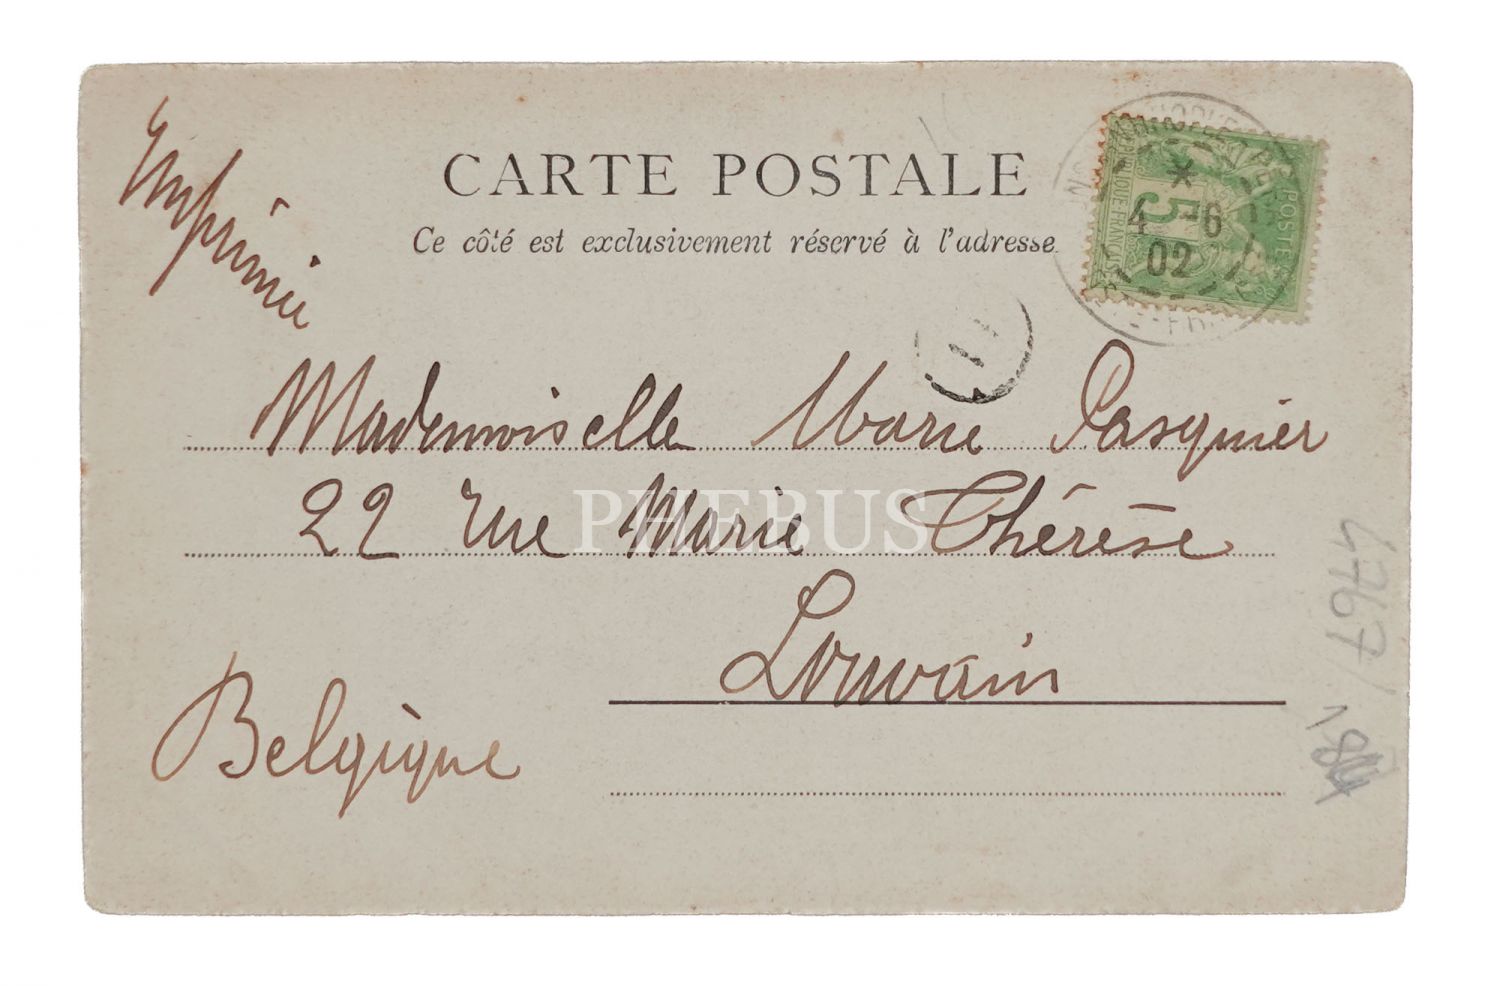 Imprimé
CARTE POSTALE
Ce côté est exclusivement réservé à l'adresse
5
POSTES
4 -6
02
Mademoiselle Marie Pasquier
22 rue Marie Thérèse
PHEBUS
Louvain
Belgique
4767